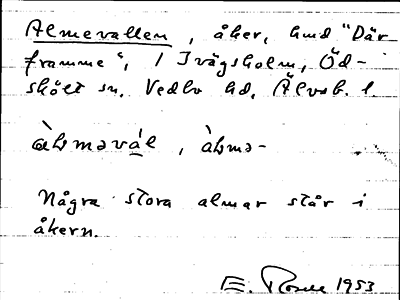 Almevallen, åker, hmd "Där
framme", / Ivägsholm, Öd-
skölt sn, Vedbo hd, Älvsb. l.
Några stora almar står i
åkern.
E. 1953